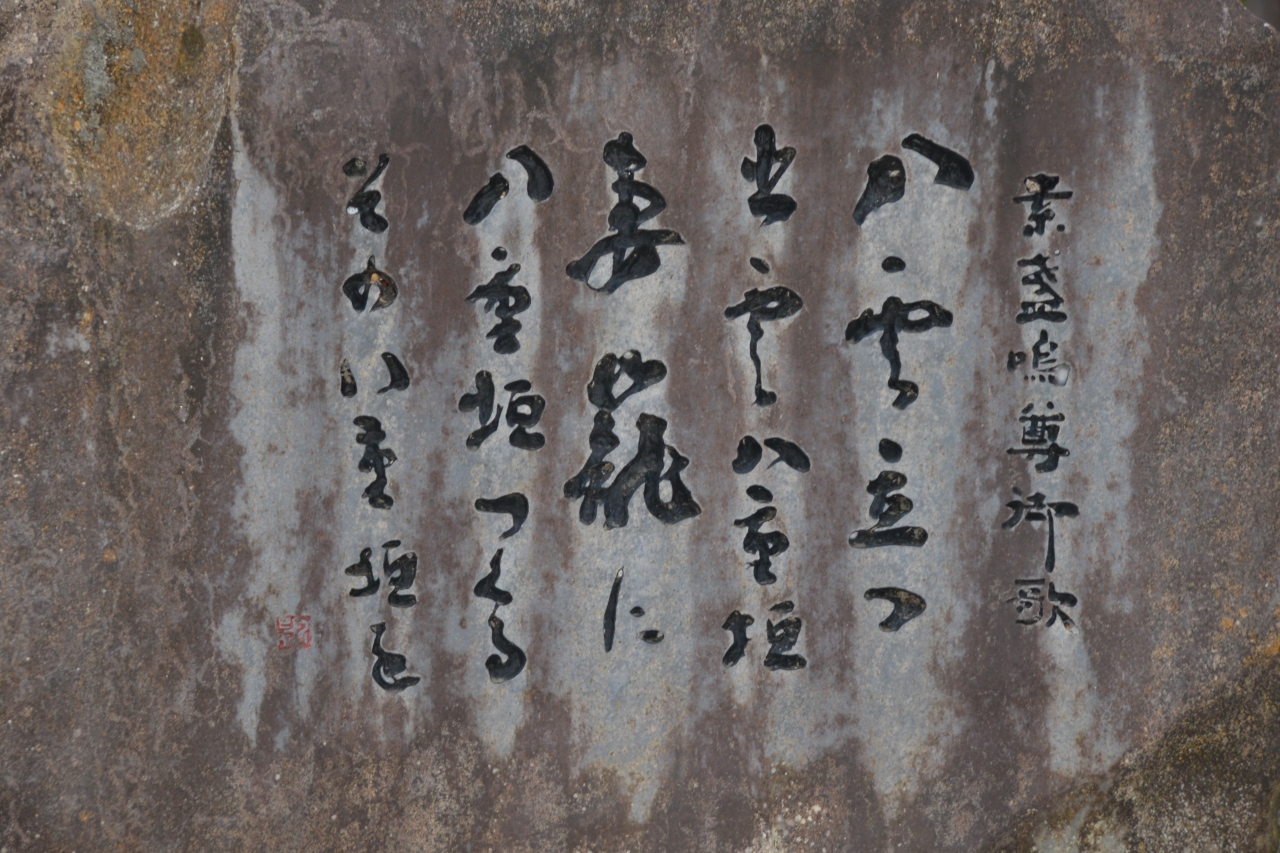 素盞嗚尊御歌
八雲立つ
出雲八重垣
妻籠に
八重垣つくる
その八重垣を